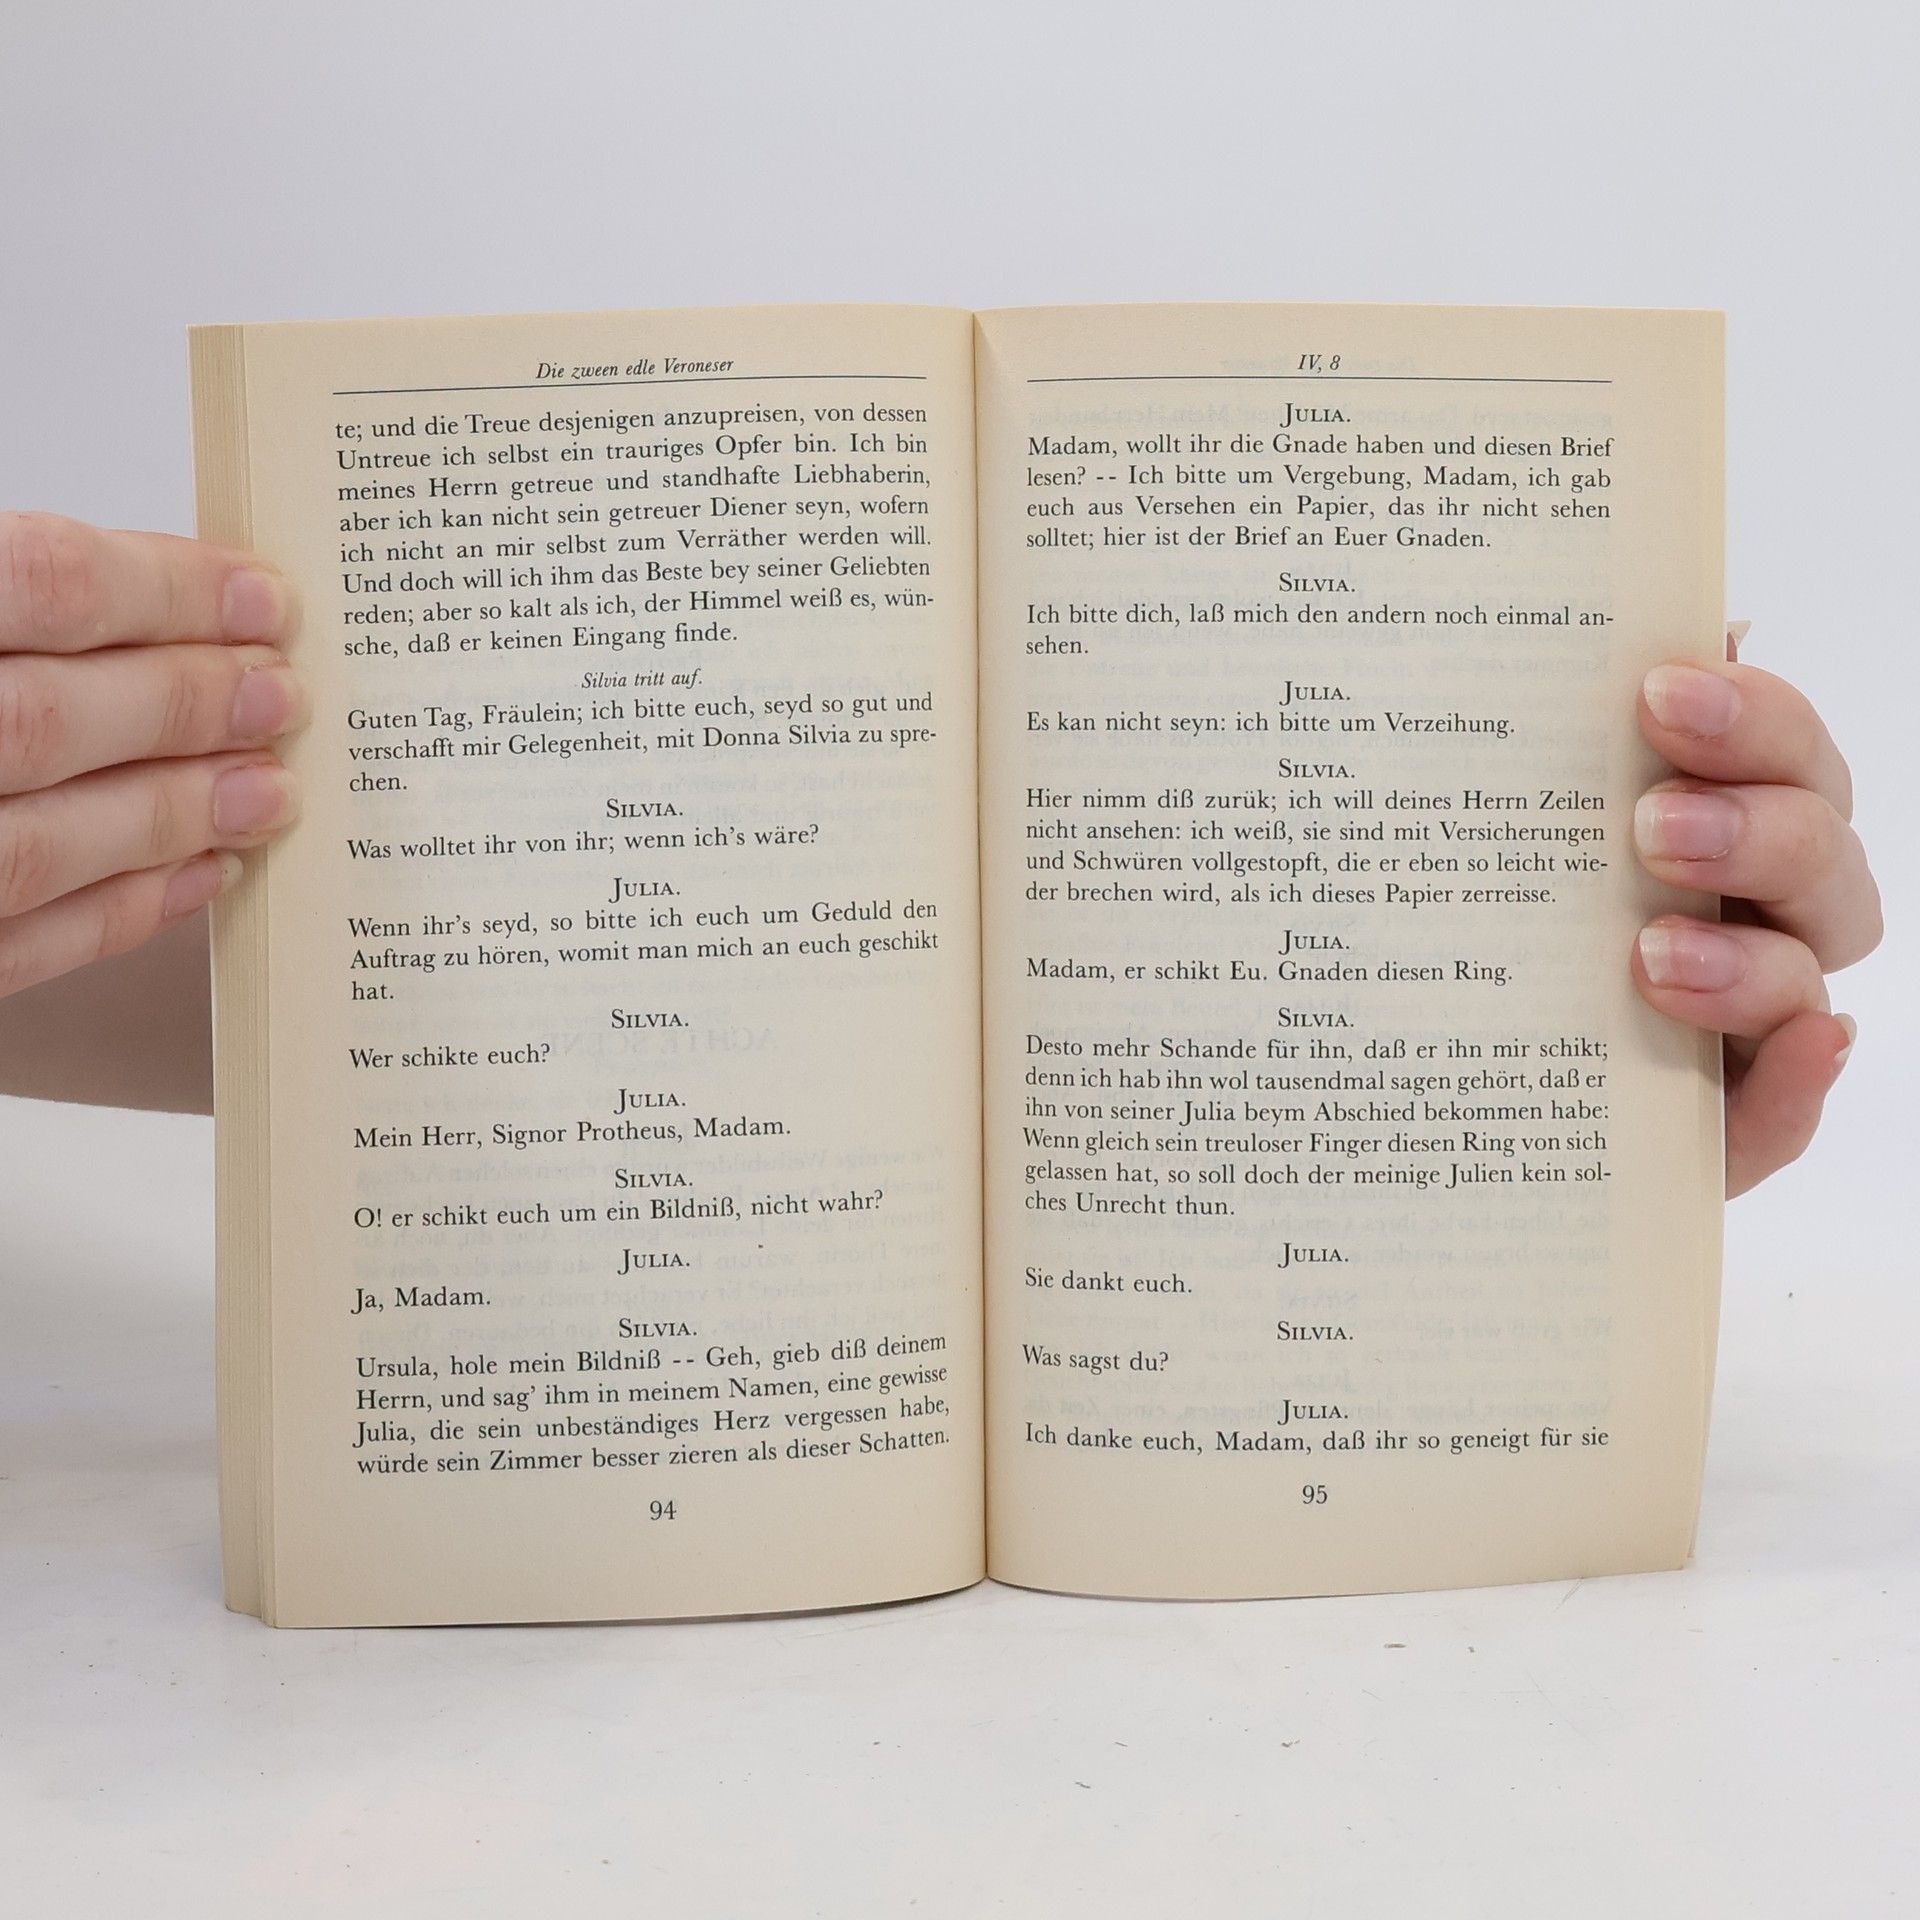 Die zween edle Veroneser
te; und die Treue desjenigen anzupreisen, von dessen
Untreue ich selbst ein trauriges Opfer bin. Ich bin
meines Herrn getreue und standhafte Liebhaberin,
aber ich kan nicht sein getreuer Diener seyn, wofern
ich nicht an mir selbst zum Verräther werden will.
Und doch will ich ihm das Beste bey seiner Geliebten
reden; aber so kalt als ich, der Himmel weiß es, wün-
sche, daß er keinen Eingang finde.
Silvia tritt auf.
Guten Tag, Fräulein; ich bitte euch, seyd so gut und
verschafft mir Gelegenheit, mit Donna Silvia zu spre-
chen.
SILVIA.
Was wolltet ihr von ihr; wenn ich's wäre?
JULIA.
Wenn ihr's seyd, so bitte ich euch um Geduld den
Auftrag zu hören, womit man mich an euch geschikt
hat.
SILVIA.
Wer schikte euch?
JULIA.
Mein Herr, Signor Protheus, Madam.
SILVIA.
O! er schikt euch um ein Bildniß, nicht wahr?
JULIA.
Ja, Madam.
SILVIA.
Ursula, hole mein Bildniß -- Geh, gieb diß deinem
Herrn, und sag' ihm in meinem Namen, eine gewisse
Julia, die sein unbeständiges Herz vergessen habe,
würde sein Zimmer besser zieren als dieser Schatten.
94
IV, 8
JULIA.
Madam, wollt ihr die Gnade haben und diesen Brief
lesen? -- Ich bitte um Vergebung, Madam, ich gab
euch aus Versehen ein Papier, das ihr nicht sehen
solltet; hier ist der Brief an Euer Gnaden.
SILVIA.
Ich bitte dich, laß mich den andern noch einmal an-
sehen.
JULIA.
Es kan nicht seyn: ich bitte um Verzeihung.
SILVIA.
Hier nimm diß zurük; ich will deines Herrn Zeilen
nicht ansehen: ich weiß, sie sind mit Versicherungen
und Schwüren vollgestopft, die er eben so leicht wie-
der brechen wird, als ich dieses Papier zerreisse.
JULIA.
Madam, er schikt Eu. Gnaden diesen Ring.
SILVIA.
Desto mehr Schande für ihn, daß er ihn mir schikt;
denn ich hab ihn wol tausendmal sagen gehört, daß er
ihn von seiner Julia beym Abschied bekommen habe:
Wenn gleich sein treuloser Finger diesen Ring von sich
gelassen hat, so soll doch der meinige Julien kein sol-
ches Unrecht thun.
JULIA.
Sie dankt euch.
SILVIA.
Was sagst du?
JULIA.
Ich danke euch, Madam, daß ihr so geneigt für sie
95